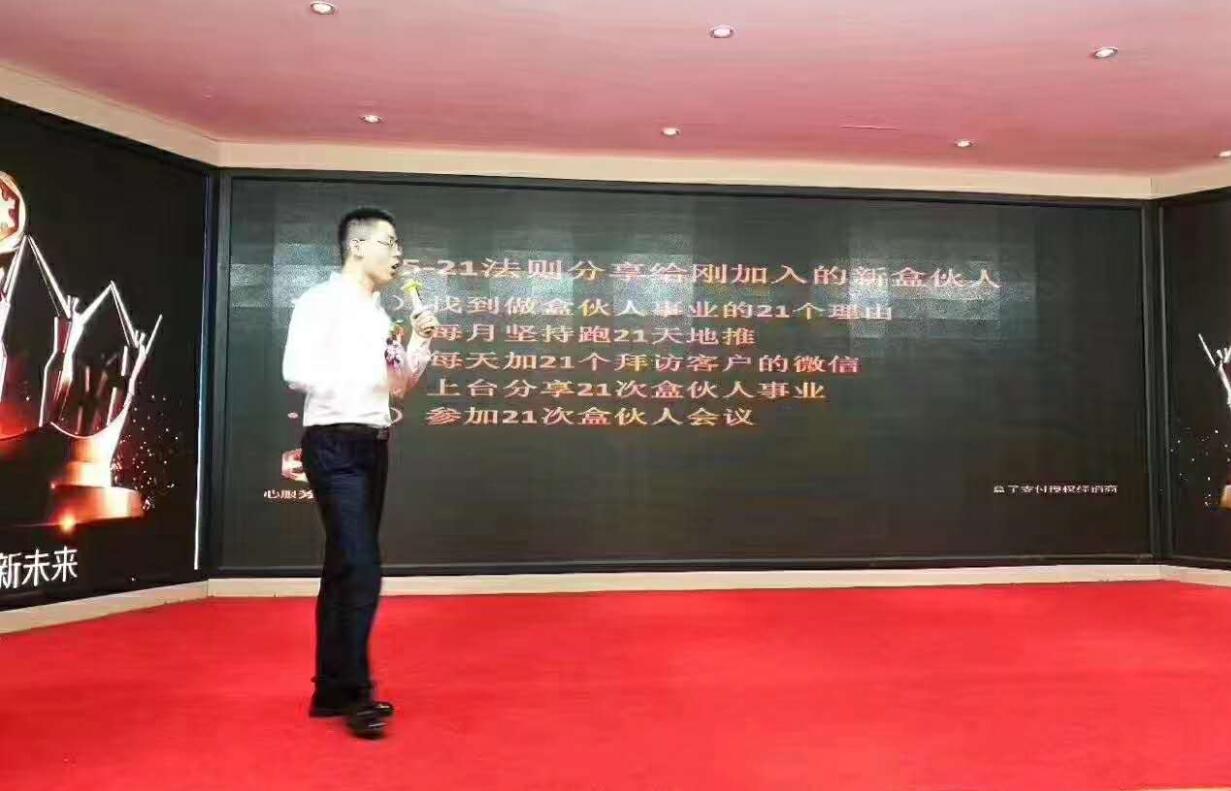 5-21法则分享给刚加入的新盒伙人
找到做盒伙人事业的21个理由
每月坚持跑21天地推
每天加21个拜访客户的微信
上台分享21次盒伙人事业
参加21次盒伙人会议
心服务
盒子支付授权经销商
新未来